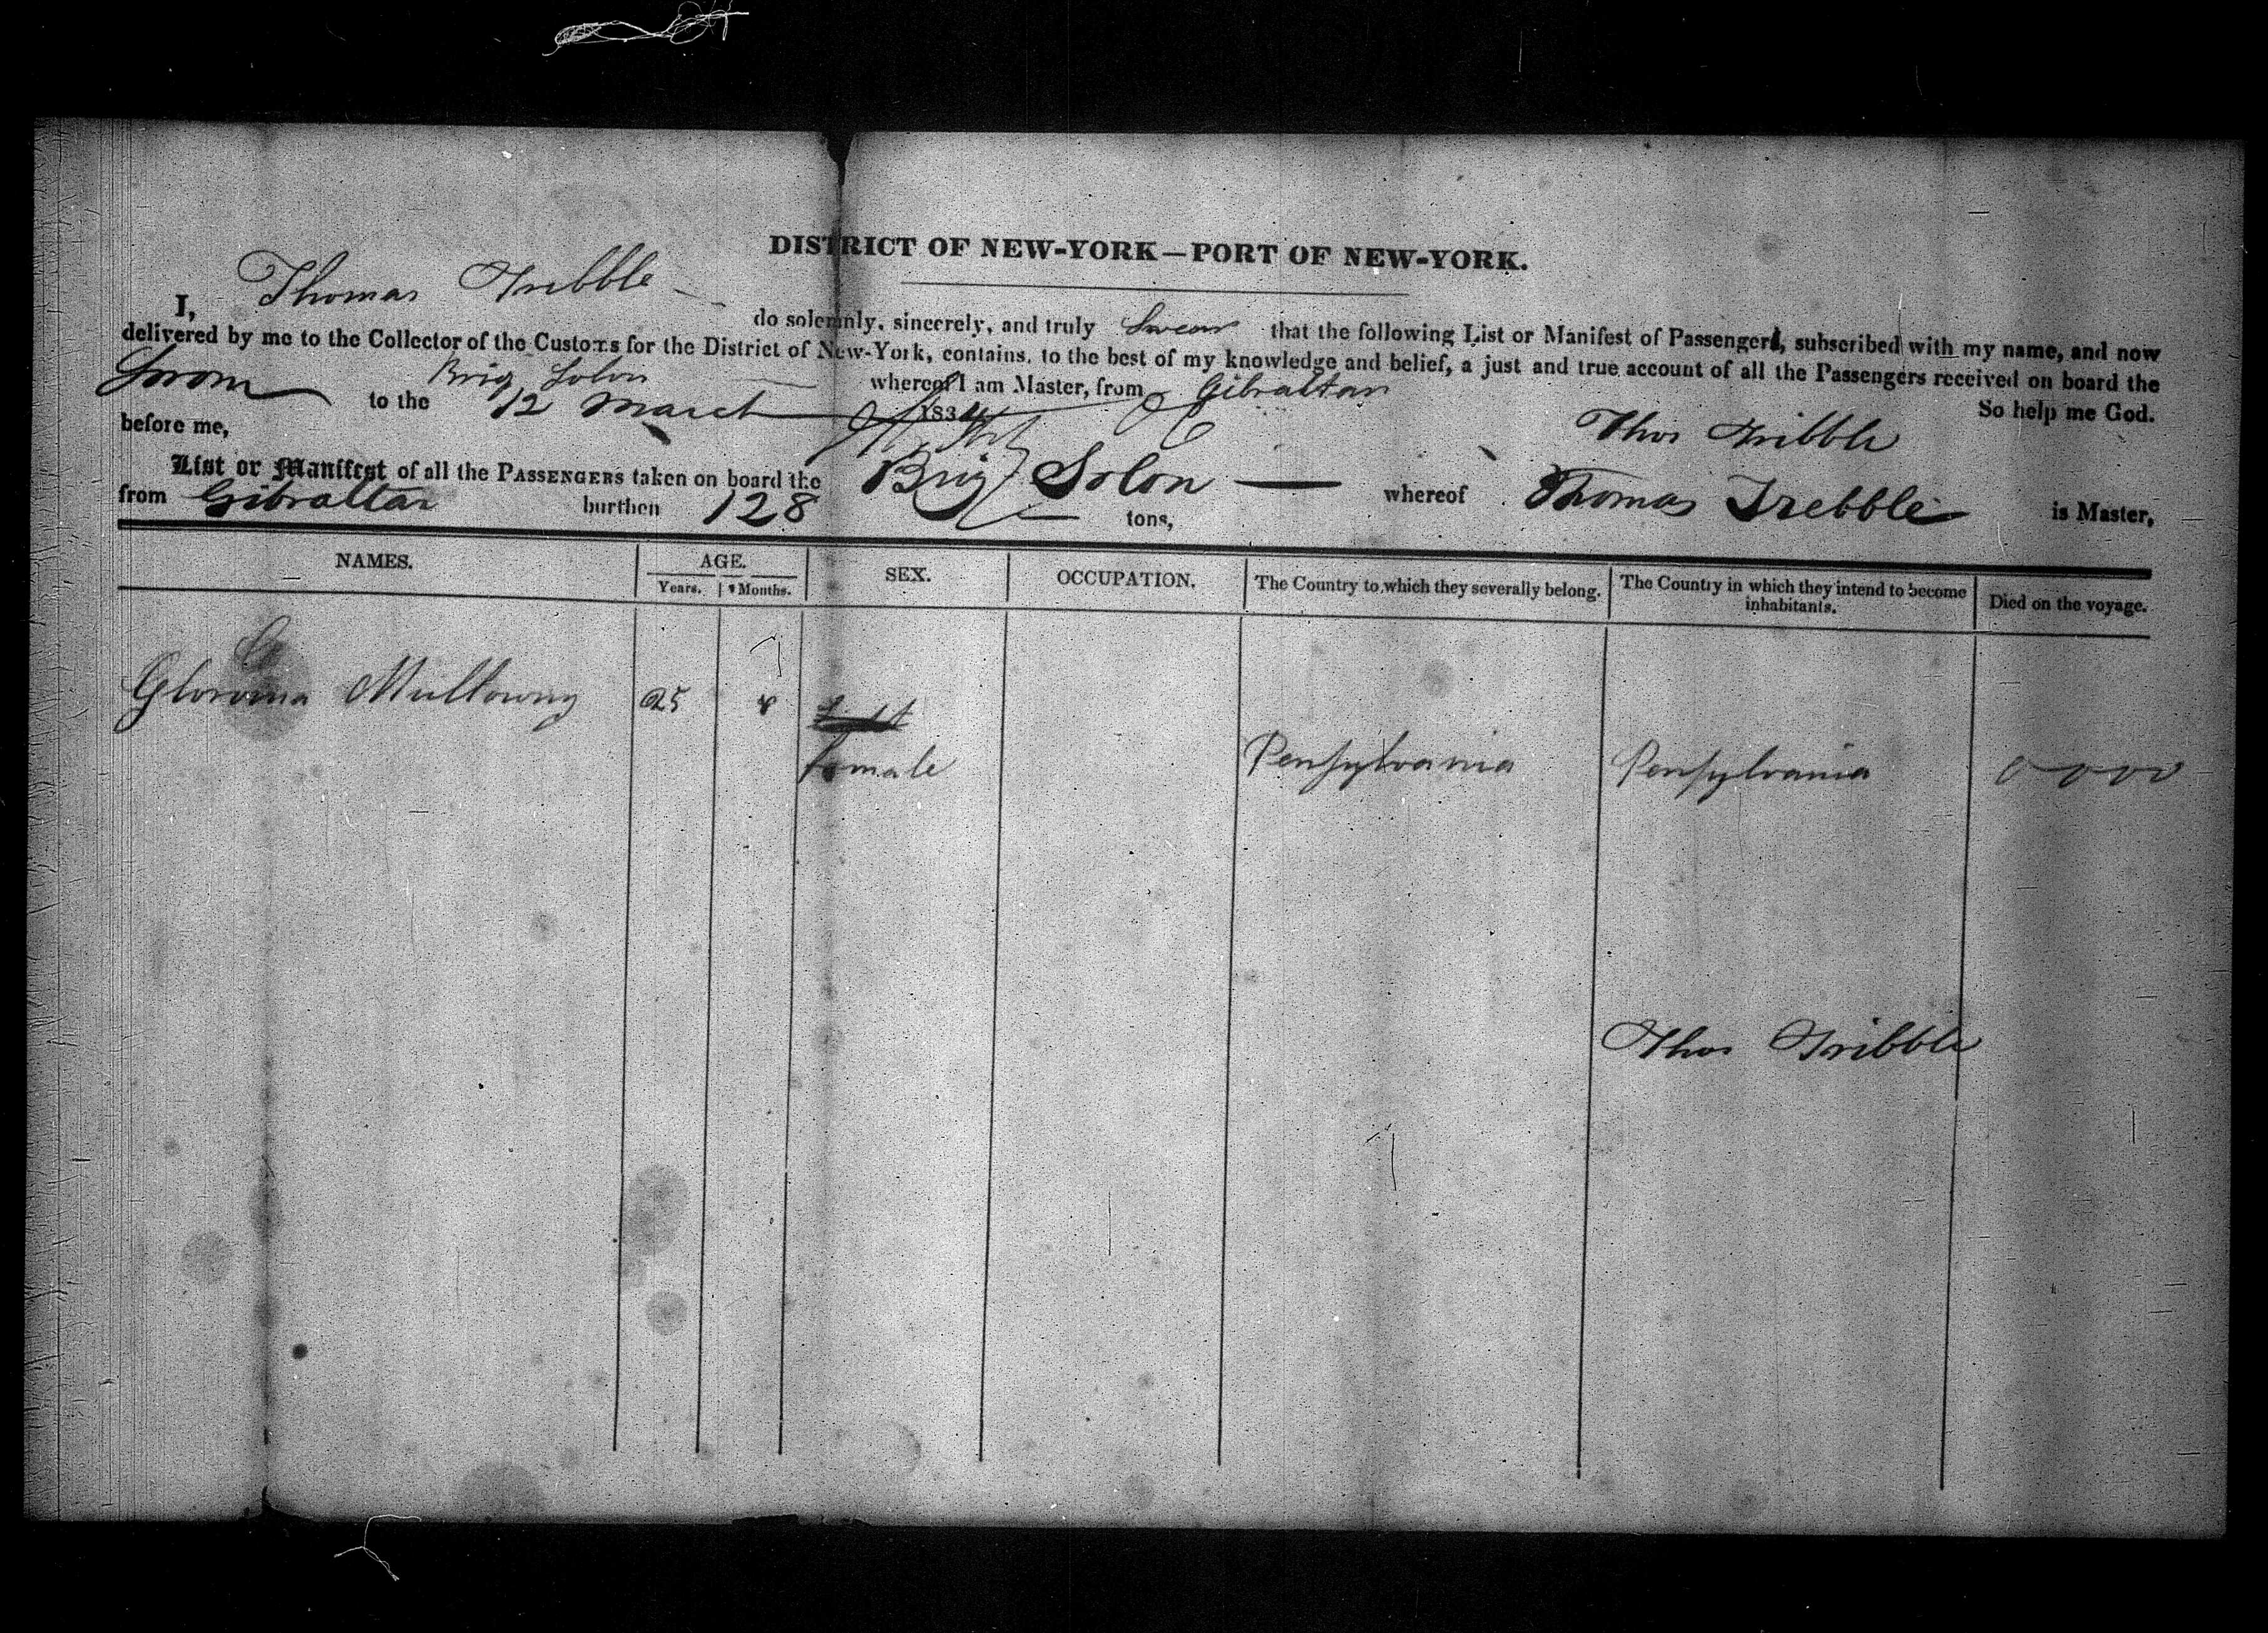 DISTRICT OF NEW-YORK—PORT OF NEW-YORK.
I, Thomas Tribble do solemnly, sincerely, and truly Swear that the following List or Manifest of Passengers, subscribed with my name, and now
delivered by me to the Collector of the Customs for the District of New-York, contains, to the best of my knowledge and belief, a just and true account of all the Passengers received on board the
Brig Solon whereof I am Master, from Gibraltar
Sworn to the 12 March 1834 So help me God.
before me, Thos Tribble
List or Manifest of all the PASSENGERS taken on board the Brig Solon whereof Thomas Trebble is Master,
from Gibraltar burthen 128 tons,
NAMES. AGE. SEX. OCCUPATION. The Country to which they severally belong. The Country in which they intend to become inhabitants. Died on the voyage.
Years. Months.
Glorvina Mullowny 25
female Pensylvania Pensylvania 0 0 0 0
Thos Tribble